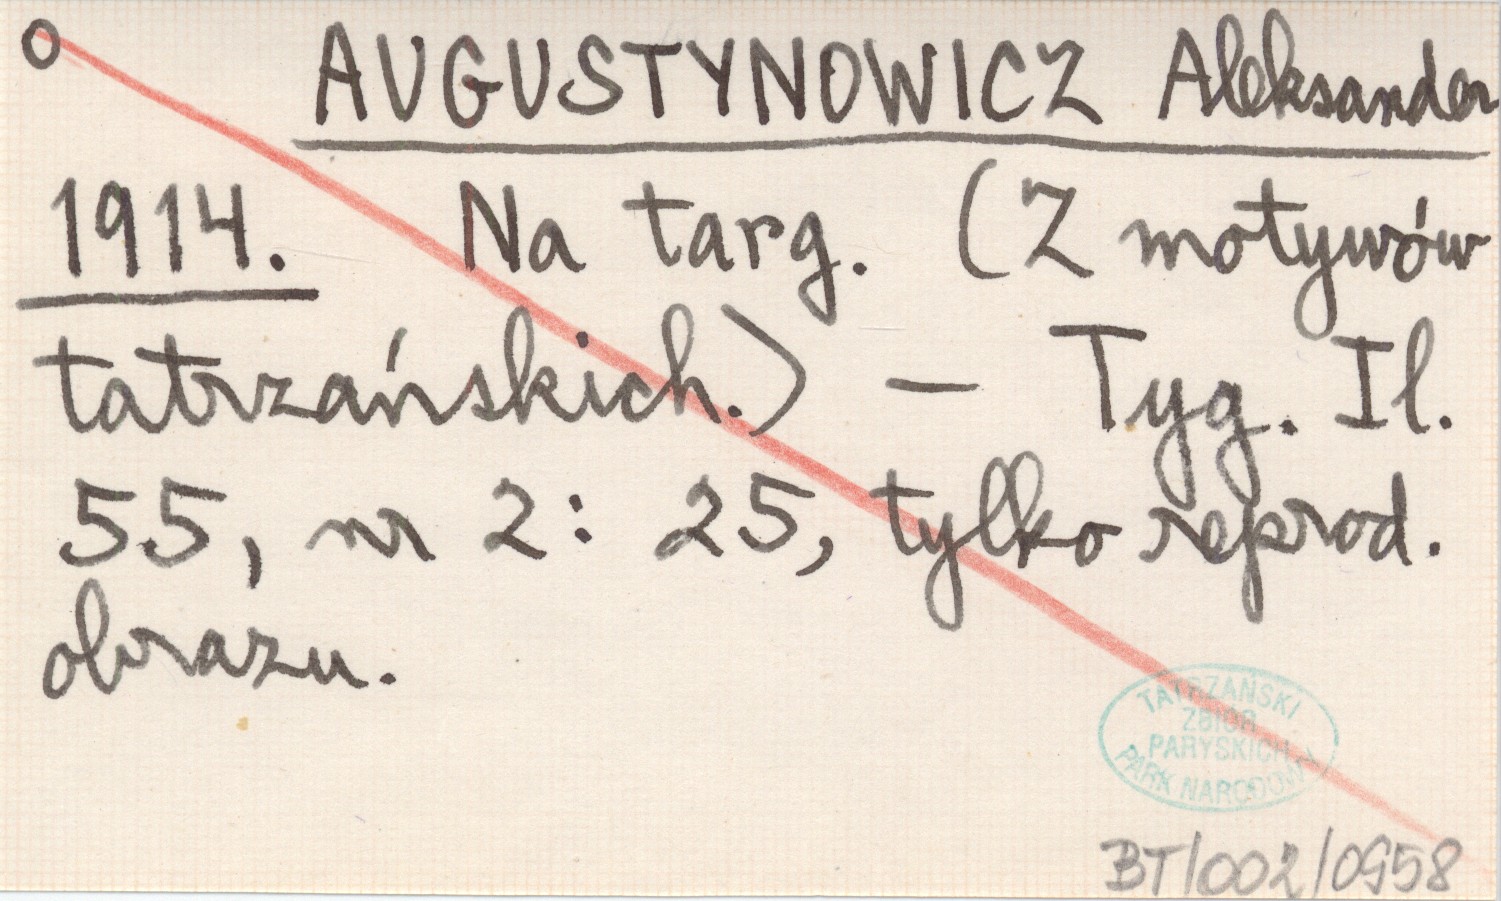 O AUGUSTYNOWICZ Aleksander
1914. Na targ. (Z motywów
tatrzańskich.) — Tyg. Il.
55, nr 2: 25, tylko reprod.
obrazu.
TATRZAŃSKI
ZBIÓR
PARYSKICH
PARK NARODOWY
BT/002/0958